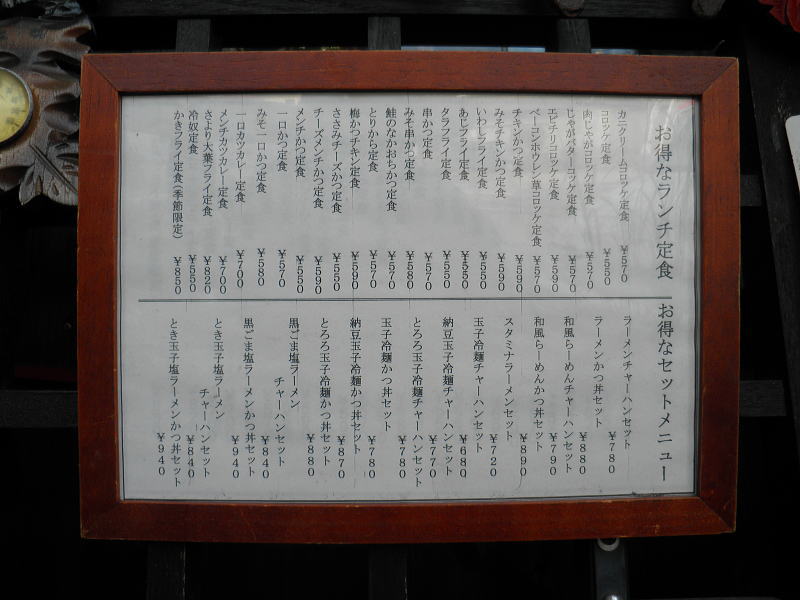 お得なランチ定食
カニクリームコロッケ定食 ￥570
コロッケ定食 ￥550
肉じゃがコロッケ定食 ￥570
じゃがバターコッケ定食 ￥570
エビチリコロッケ定食 ￥590
ベーコンホウレン草コロッケ定食 ￥570
チキンかつ定食 ￥590
みそチキンかつ定食 ￥590
いわしフライ定食 ￥550
あじフライ定食 ￥550
タラフライ定食 ￥550
串かつ定食 ￥570
みそ串かつ定食 ￥580
鮭のなかおちかつ定食 ￥570
とりから定食 ￥570
梅かつチキン定食 ￥590
ささみチーズかつ定食 ￥550
チーズメンチかつ定食 ￥590
メンチかつ定食 ￥550
一口かつ定食 ￥570
みそ一口かつ定食 ￥580
一口カツカレー定食 ￥700
メンチカツカレー定食 ￥700
さより大葉フライ定食 ￥820
冷奴定食 ￥550
かきフライ定食(季節限定) ￥850
お得なセットメニュー
ラーメンチャーハンセット ￥780
ラーメンかつ丼セット ￥880
和風らーめんチャーハンセット ￥790
和風らーめんかつ丼セット ￥890
スタミナラーメンセット ￥720
玉子冷麺チャーハンセット ￥680
納豆玉子冷麺チャーハンセット ￥770
とろろ玉子冷麺チャーハンセット ￥780
玉子冷麺かつ丼セット ￥780
納豆玉子冷麺かつ丼セット ￥870
とろろ玉子冷麺かつ丼セット ￥880
黒ごま塩ラーメン
チャーハンセット ￥840
黒ごま塩ラーメンかつ丼セット ￥940
とき玉子塩ラーメン
チャーハンセット ￥840
とき玉子塩ラーメンかつ丼セット ￥940